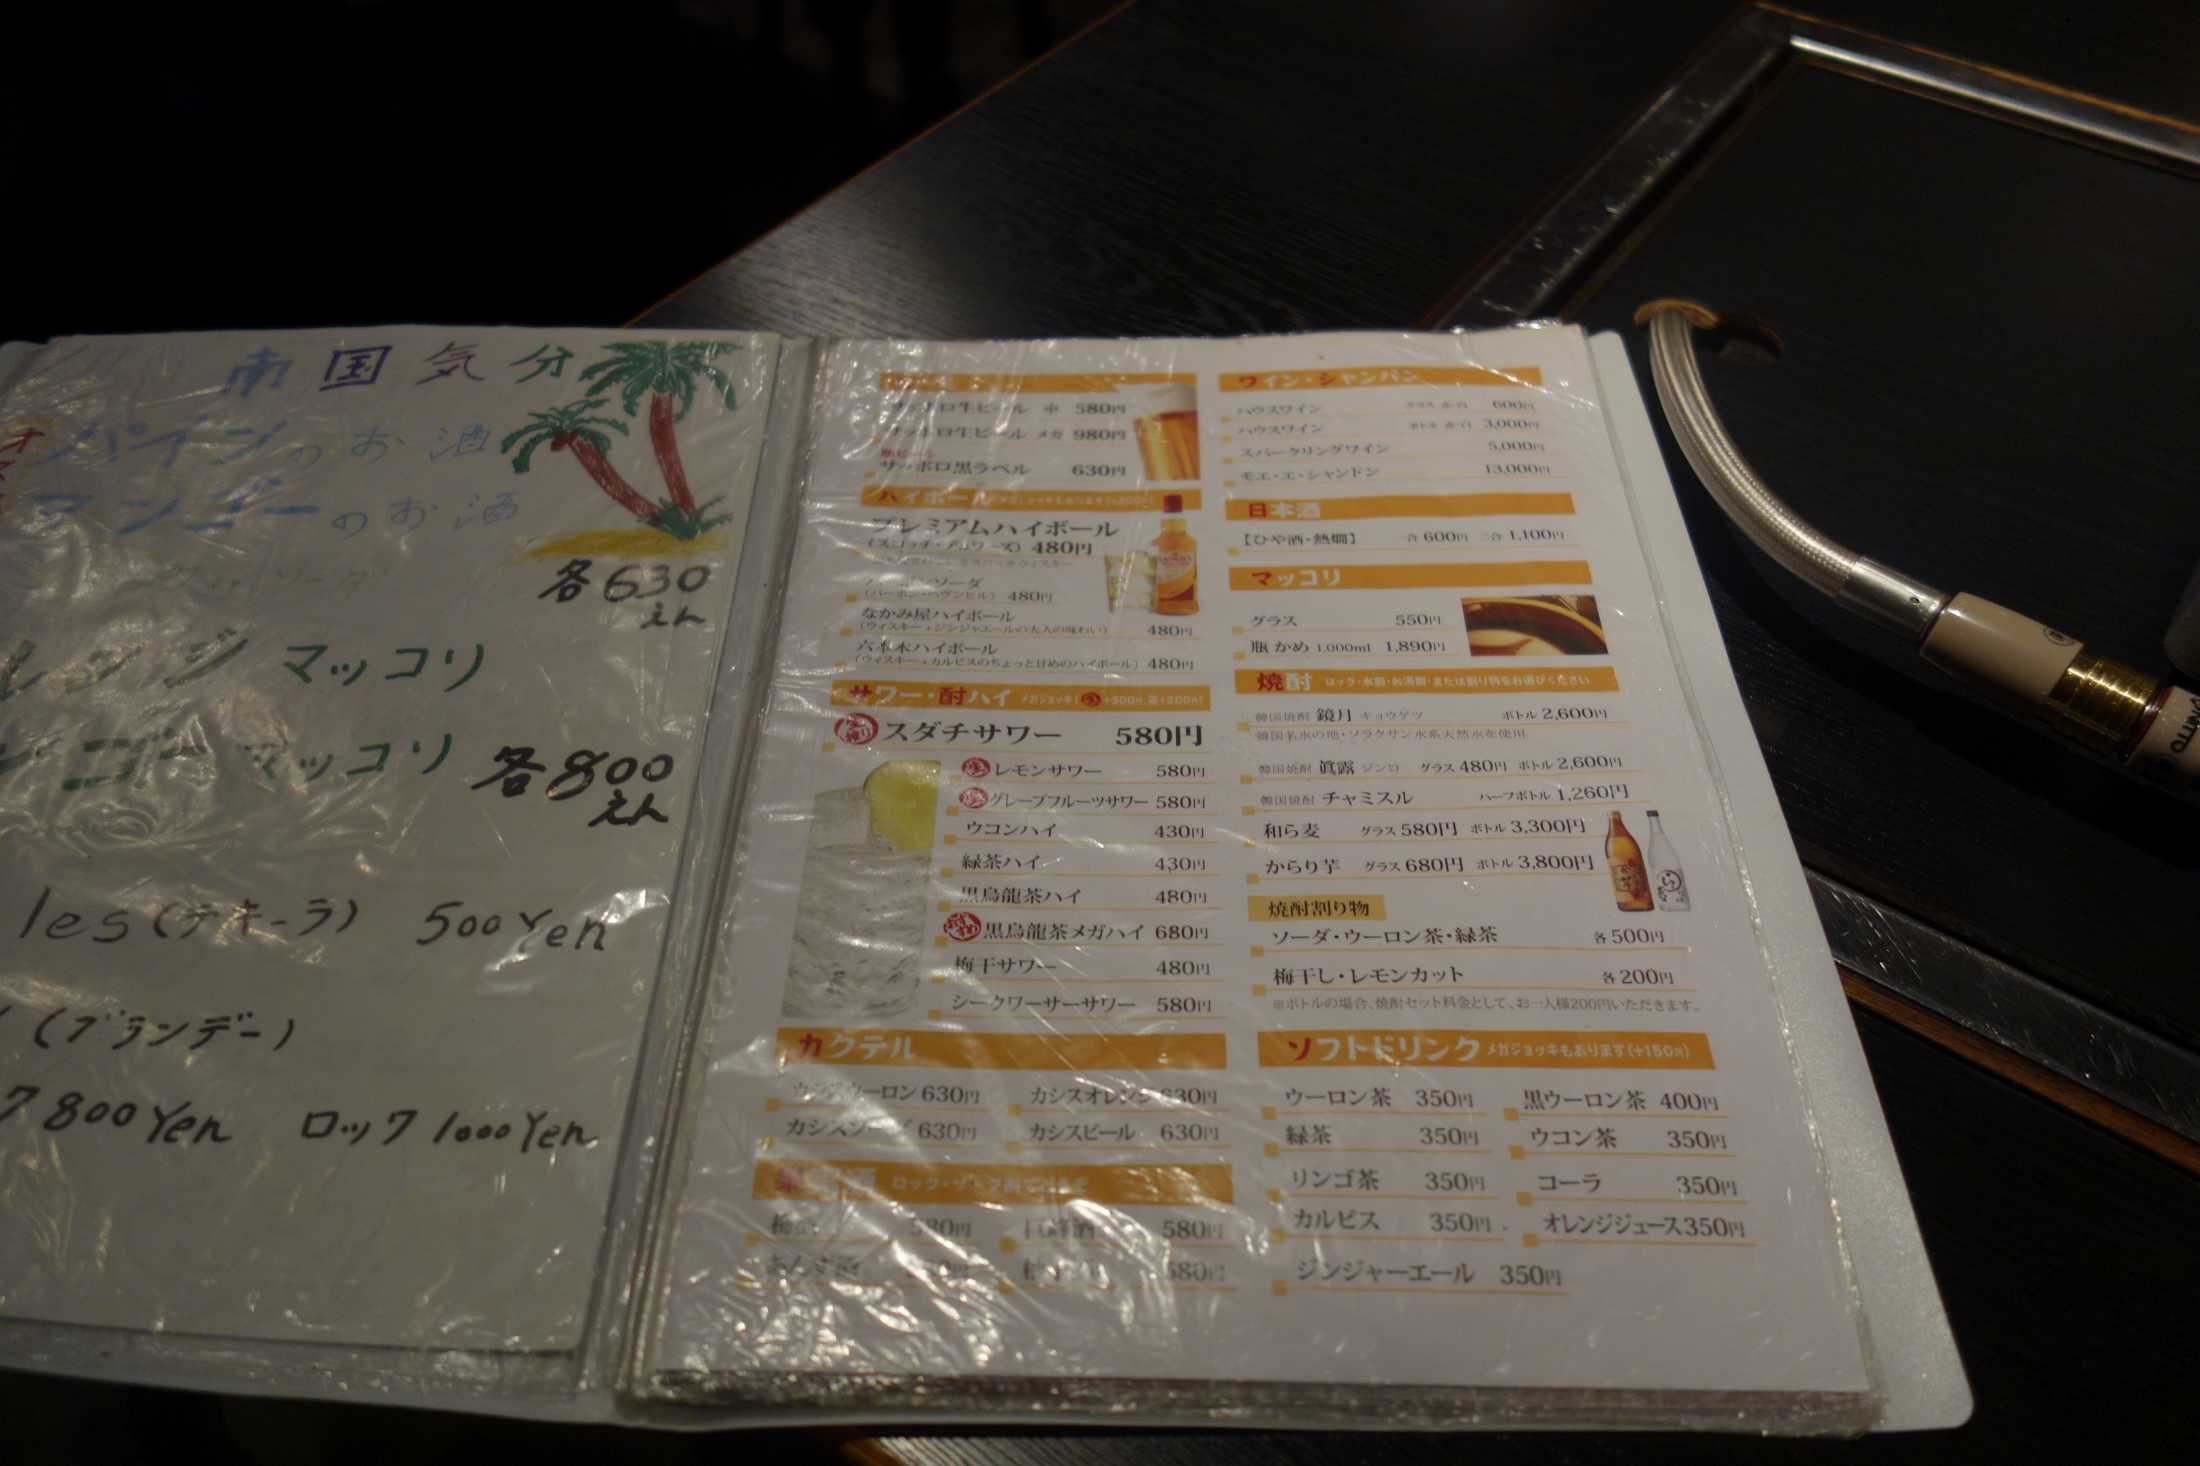 南国気分
パインのお酒
マンゴーのお酒
ソーダ
各630
えん
レンジ マッコリ
ンゴー マッコリ
各800
えん
les(テキーラ) 500Yen
(ブランデー)
ク 800Yen ロック 1000Yen
サッポロ生ビール 中 580円
サッポロ生ビール メガ 980円
瓶ビール
サッポロ黒ラベル 630円
ハイボール メガジョッキもあります(+200円)
プレミアムハイボール
480円
ソーダ
(バーボン・ヘヴンヒル) 480円
なかみ屋ハイボール
(ウィスキー+ジンジャエールの大人の味わい) 480円
六本木ハイボール
(ウィスキー+カルピスのちょっと甘めのハイボール) 480円
サワー・酎ハイ
スダチサワー 580円
生レモンサワー 580円
生グレープフルーツサワー 580円
ウコンハイ 430円
緑茶ハイ 430円
黒烏龍茶ハイ 480円
黒烏龍茶メガハイ 680円
梅干サワー 480円
シークワーサーサワー 580円
カクテル
カシスウーロン 630円 カシスオレンジ 630円
カシスソーダ 630円 カシスビール 630円
果実酒
580円 巨峰酒 580円
あんず酒 580円
ワイン・シャンパン
ハウスワイン グラス 赤・白 600円
ハウスワイン ボトル 赤・白 3,000円
スパークリングワイン 5,000円
モエ・エ・シャンドン 13,000円
日本酒
【ひや酒・熱燗】 一合 600円 二合 1,100円
マッコリ
グラス 550円
瓶 かめ 1,000ml 1,890円
焼酎 ロック・水割・お湯割・または割り物をお選びください
韓国焼酎 鏡月 キョウゲツ ボトル 2,600円
韓国名水の地・ソラクサン水系天然水を使用
韓国焼酎 眞露 ジンロ グラス 480円 ボトル 2,600円
韓国焼酎 チャミスル ハーフボトル 1,260円
和ら麦 グラス 580円 ボトル 3,300円
からり芋 グラス 680円 ボトル 3,800円
焼酎割り物
ソーダ・ウーロン茶・緑茶 各 500円
梅干し・レモンカット 各 200円
※ボトルの場合、焼酎セット料金として、お一人様200円いただきます。
ソフトドリンク メガジョッキもあります(+150円)
ウーロン茶 350円 黒ウーロン茶 400円
緑茶 350円 ウコン茶 350円
リンゴ茶 350円 コーラ 350円
カルピス 350円 オレンジジュース 350円
ジンジャーエール 350円